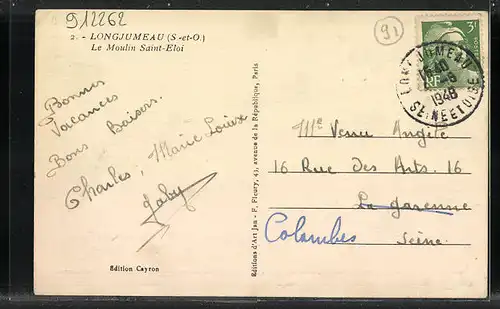 912262
91
2. - LONGJUMEAU (S.-et-O.)
Le Moulin Saint-Eloi
3F
LONGJUMEAU
1948
SEINE ET OISE
Bonnes
Vacances
Bons Baisers.
Charles, Marie Louise
Gaby
Mme Venu Angèle
16 Rue Des Arts. 16
La Garenne
Colombes
Seine
Editions d'Art Jan - P. Fleury, 43, avenue de la République, Paris
Édition Cayron